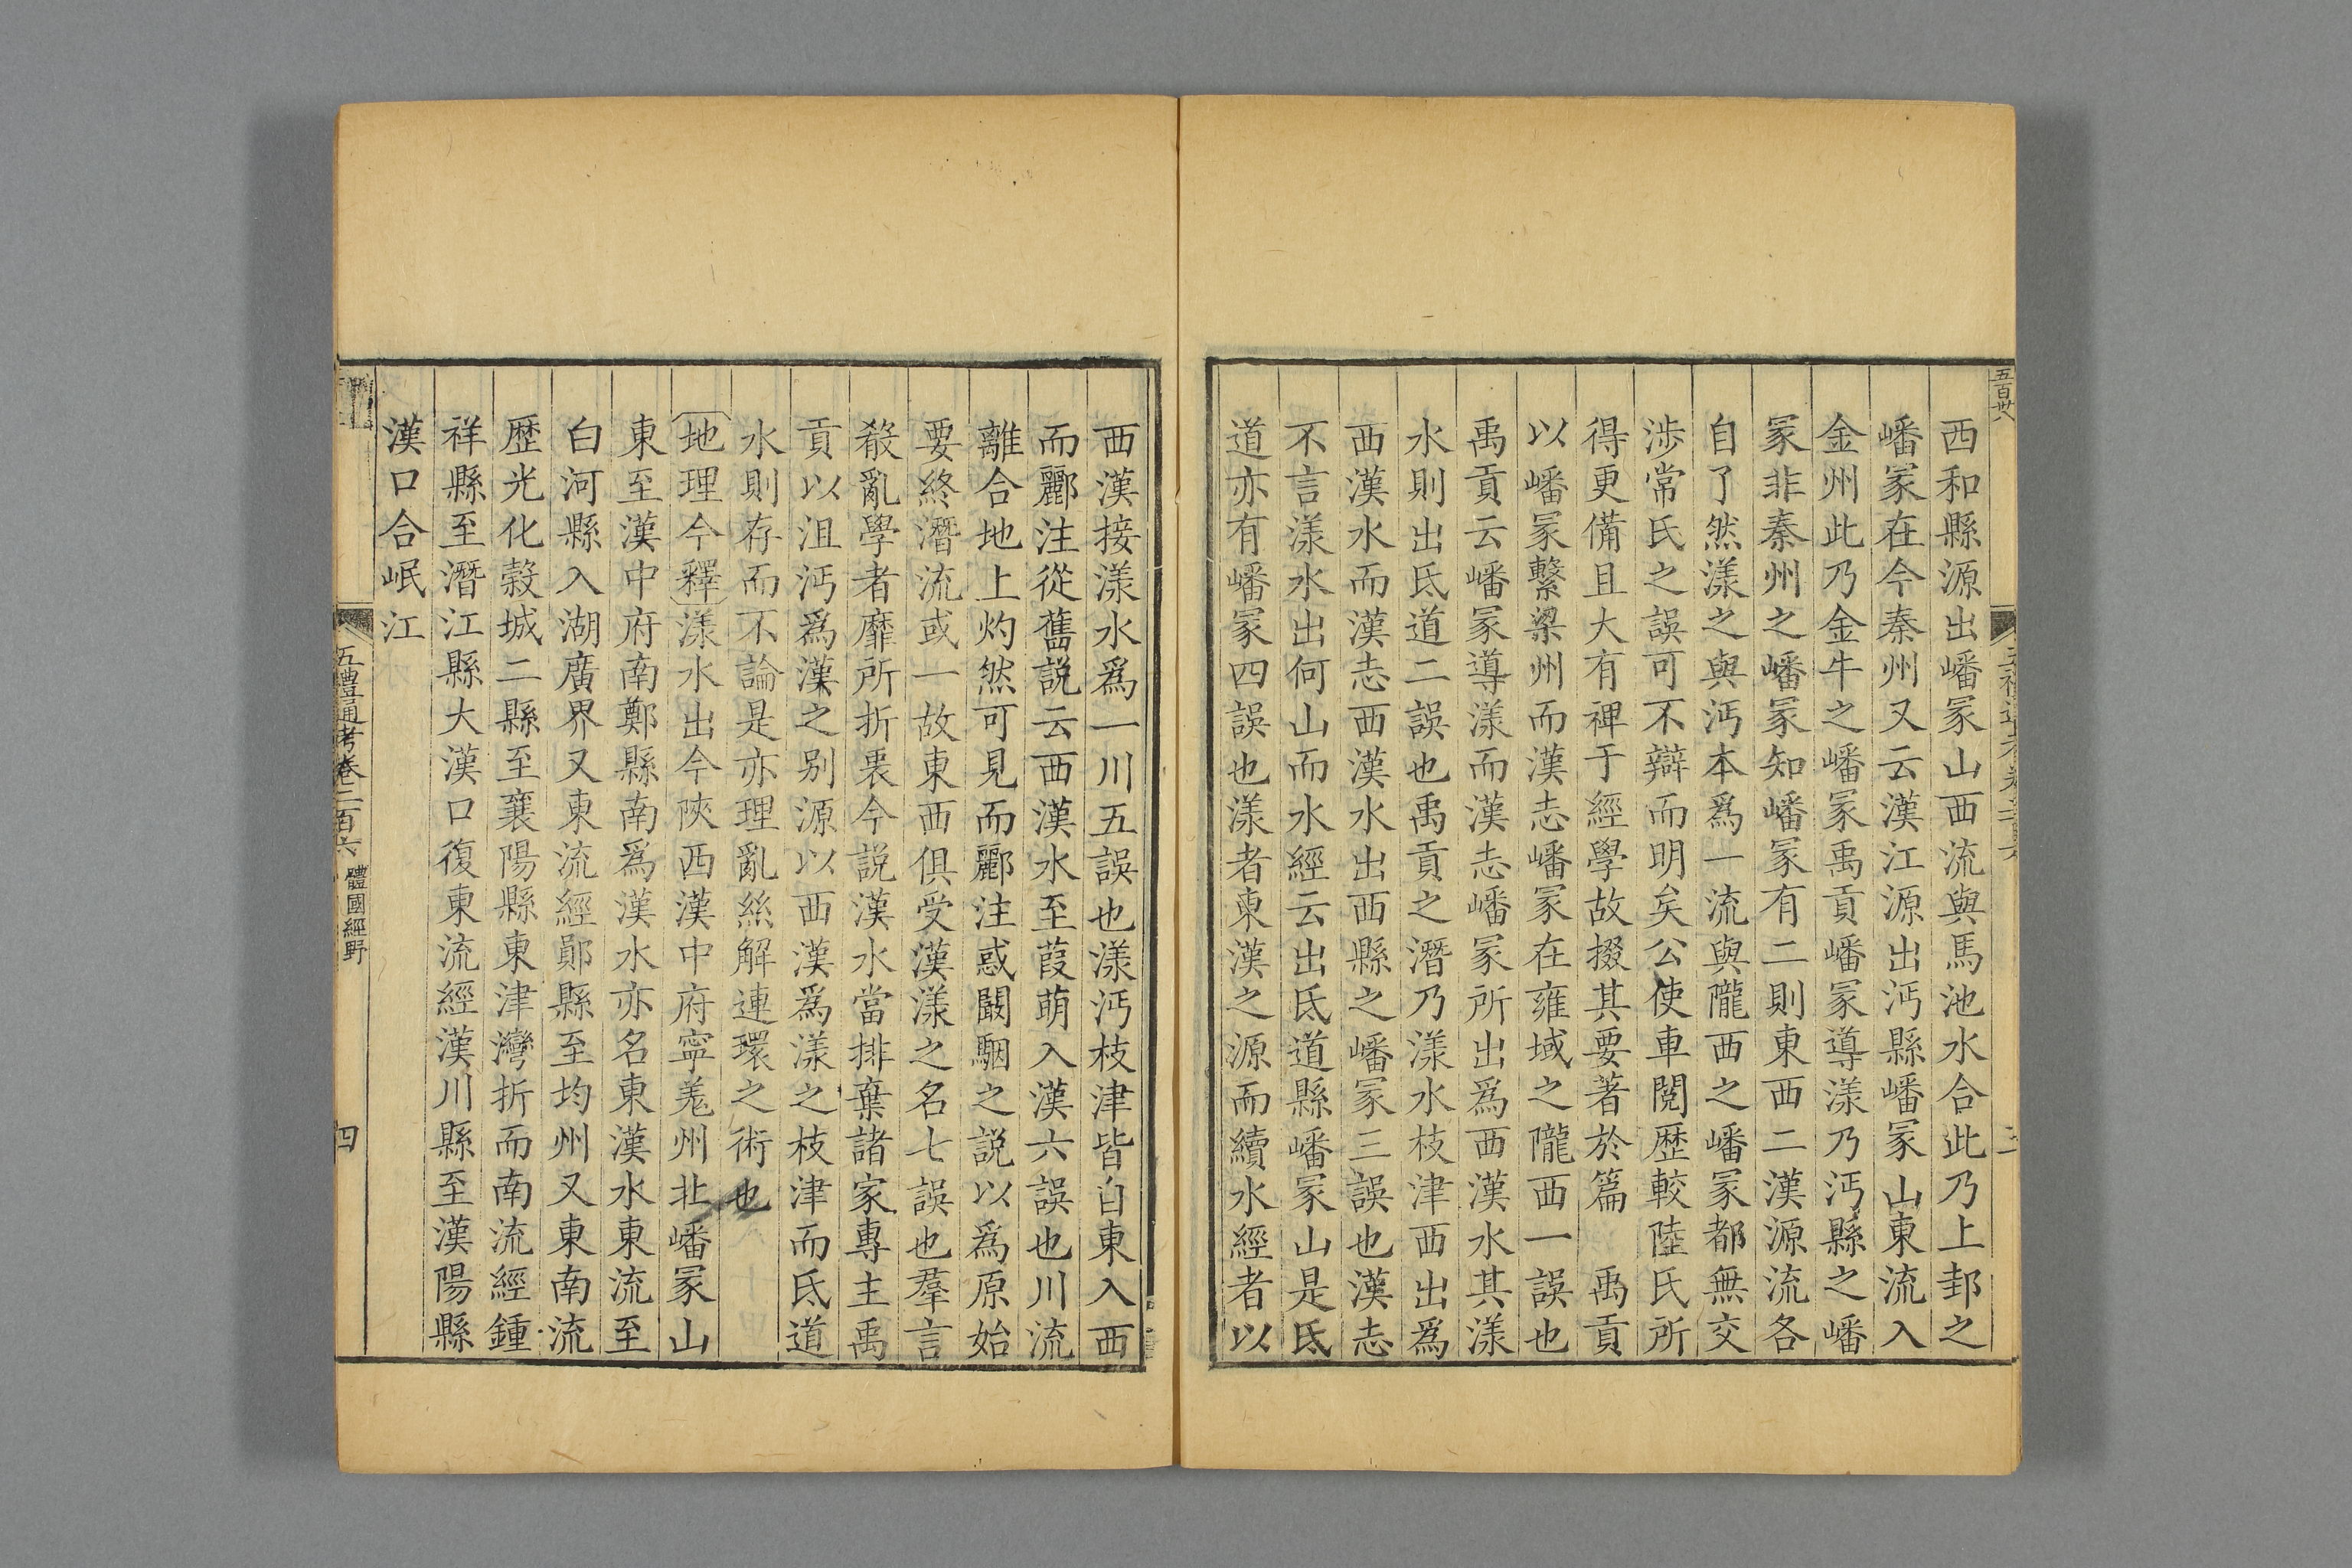 五百卅八
西和縣源出嶓冢山西流與馬池水合此乃上邽之
嶓冢在今秦州又云漢江源出沔縣嶓冢山東流入
金州此乃金牛之嶓冢禹貢嶓冢導漾乃沔縣之嶓
冢非秦州之嶓冢知嶓冢有二則東西二漢源流各
自了然漾之與沔本爲一流與隴西之嶓冢都無交
渉常氏之誤可不辯而明矣公使車閱歷較陸氏所
得更備且大有裨于經學故掇其要著於篇 禹貢
以嶓冢繫梁州而漢志嶓冢在雍域之隴西一誤也
禹貢云嶓冢導漾而漢志嶓冢所出爲西漢水其漾
水則出氐道二誤也禹貢之潛乃漾水枝津西出爲
西漢水而漢志西漢水出西縣之嶓冢三誤也漢志
不言漾水出何山而水經云出氐道縣嶓冢山是氐
道亦有嶓冢四誤也漾者東漢之源而續水經者以
西漢接漾水爲一川五誤也漾沔枝津皆自東入西
而酈注從舊説云西漢水至葭萌入漢六誤也川流
離合地上灼然可見而酈注惑闞駰之説以爲原始
要終潛流或一故東西俱受漢漾之名七誤也羣言
殽亂學者靡所折衷今説漢水當排棄諸家專主禹
貢以沮沔爲漢之别源以西漢爲漾之枝津而氐道
水則存而不論是亦理亂絲解連環之術也
地理今釋漾水出今陝西漢中府寧羗州北嶓冢山
東至漢中府南鄭縣南爲漢水亦名東漢水東流至
白河縣入湖廣界又東流經鄖縣至均州又東南流
歷光化榖城二縣至襄陽縣東津灣折而南流經鍾
祥縣至潛江縣大漢口復東流經漢川縣至漢陽縣
漢口合岷江
五禮通考卷二百六 體國經野 四